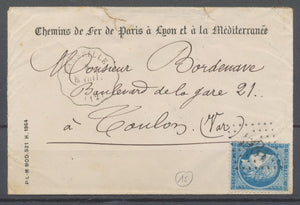 Chemins de Fer de Paris à Lyon et à la Méditerranée
Monsieur Bordenave
Boulevard de la gare 21..
à Toulon (Var.)
P.L.M. 900.521. H. 1864
15